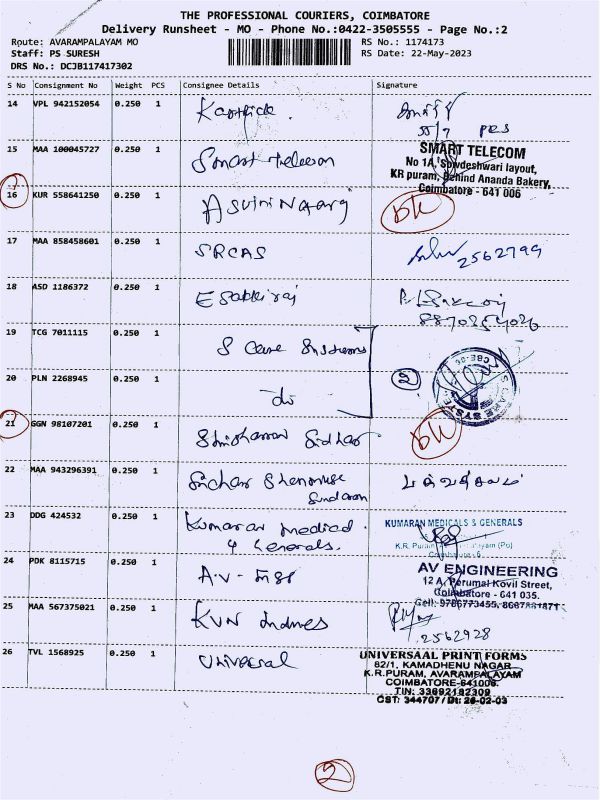 THE PROFESSIONAL COURIERS, COIMBATORE
Delivery Runsheet - MO - Phone No.:0422-3505555 - Page No.:2
Route: AVARAMPALAYAM MO
Staff: PS SURESH
DRS No.: DCJB117417302
RS No.: 1174173
RS Date: 22-May-2023
S No Consignment No Weight PCS Consignee Details Signature
14 VPL 942152054 0.250 1 Karthick.
15 MAA 100045727 0.250 1 Smart Telecom
SMART TELECOM
No 1A, Sowdeshwari layout,
KR puram, Behind Ananda Bakery,
Coimbatore - 641 006
16 KUR 558641250 0.250 1 Asvini Nataraj
17 MAA 858458601 0.250 1 SRCAS 2562799
18 ASD 1186372 0.250 1 E Sakthiraj
19 TCG 7011115 0.250 1 S Care Systems
20 PLN 2268945 0.250 1 do 2
S CARE SYSTE
CBE-06
21 GGN 98107201 0.250 1 Sridhar
22 MAA 943296391 0.250 1 Sundaram
23 DDG 424532 0.250 1 Kumaran Medical
& Generals.
KUMARAN MEDICALS & GENERALS
24 PDK 8115715 0.250 1 A.V-
AV ENGINEERING
12 A, Perumal Kovil Street,
Coimbatore - 641 035.
25 MAA 567375021 0.250 1 KVN
2562928
26 TVL 1568925 0.250 1 Universal
UNIVERSAAL PRINT FORMS
62/1, KAMADHENU NAGAR
K.R.PURAM, AVARAMPALAYAM
COIMBATORE-641006.
TIN: 33692182309
CST: 344707 / Dt: 26-02-03
2